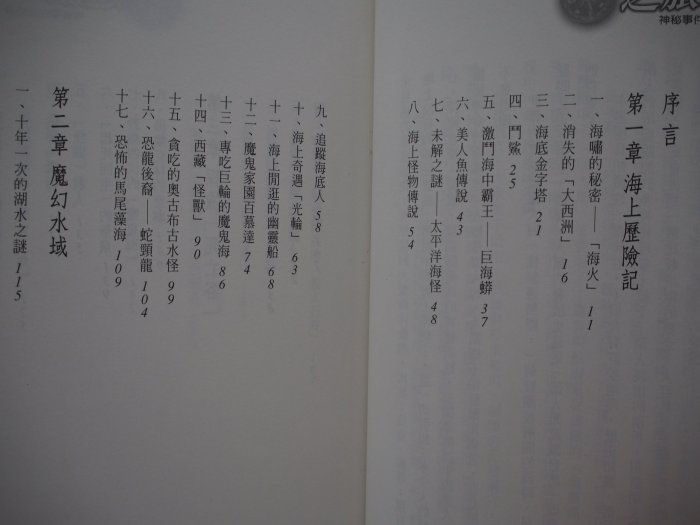 神秘事件
序言
第一章 海上歷險記
一、海嘯的秘密——「海火」 11
二、消失的「大西洲」 16
三、海底金字塔 21
四、鬥鯊 25
五、激鬥海中霸王——巨海蟒 37
六、美人魚傳說 43
七、未解之謎——太平洋海怪 48
八、海上怪物傳說 54
九、追蹤海底人 58
十、海上奇遇「光輪」 63
十一、海上閒逛的幽靈船 68
十二、魔鬼家園百慕達 74
十三、專吃巨輪的魔鬼海 86
十四、西藏「怪獸」 90
十五、貪吃的奧古布古水怪 99
十六、恐龍後裔——蛇頸龍 104
十七、恐怖的馬尾藻海 109
第二章 魔幻水域
一、十年一次的湖水之謎 115